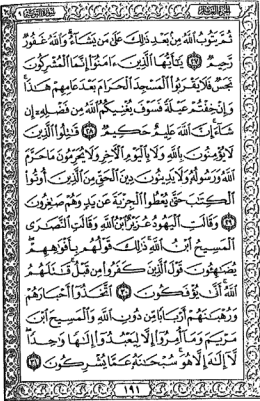 ثُمَّ يَتُوبُ ٱللَّهُ مِنۢ بَعْدِ ذَٰلِكَ عَلَىٰ مَن يَشَآءُ وَٱللَّهُ غَفُورٌ
رَّحِيمٌ ٢٧ يَٰٓأَيُّهَا ٱلَّذِينَ ءَامَنُوٓا۟ إِنَّمَا ٱلْمُشْرِكُونَ
نَجَسٌ فَلَا يَقْرَبُوا۟ ٱلْمَسْجِدَ ٱلْحَرَامَ بَعْدَ عَامِهِمْ هَٰذَا
وَإِنْ خِفْتُمْ عَيْلَةً فَسَوْفَ يُغْنِيكُمُ ٱللَّهُ مِن فَضْلِهِۦٓ إِن
شَآءَ إِنَّ ٱللَّهَ عَلِيمٌ حَكِيمٌ ٢٨ قَٰتِلُوا۟ ٱلَّذِينَ
لَا يُؤْمِنُونَ بِٱللَّهِ وَلَا بِٱلْيَوْمِ ٱلْءَاخِرِ وَلَا يُحَرِّمُونَ مَا حَرَّمَ
ٱللَّهُ وَرَسُولُهُۥ وَلَا يَدِينُونَ دِينَ ٱلْحَقِّ مِنَ ٱلَّذِينَ أُوتُوا۟
ٱلْكِتَٰبَ حَتَّىٰ يُعْطُوا۟ ٱلْجِزْيَةَ عَن يَدٍ وَهُمْ صَٰغِرُونَ
٢٩ وَقَالَتِ ٱلْيَهُودُ عُزَيْرٌ ٱبْنُ ٱللَّهِ وَقَالَتِ ٱلنَّصَٰرَى
ٱلْمَسِيحُ ٱبْنُ ٱللَّهِ ذَٰلِكَ قَوْلُهُم بِأَفْوَٰهِهِمْ
يُضَٰهِـُٔونَ قَوْلَ ٱلَّذِينَ كَفَرُوا۟ مِن قَبْلُ قَٰتَلَهُمُ
ٱللَّهُ أَنَّىٰ يُؤْفَكُونَ ٣٠ ٱتَّخَذُوٓا۟ أَحْبَارَهُمْ
وَرُهْبَٰنَهُمْ أَرْبَابًا مِّن دُونِ ٱللَّهِ وَٱلْمَسِيحَ ٱبْنَ
مَرْيَمَ وَمَآ أُمِرُوٓا۟ إِلَّا لِيَعْبُدُوٓا۟ إِلَٰهًا وَٰحِدًا
لَّآ إِلَٰهَ إِلَّا هُوَ سُبْحَٰنَهُۥ عَمَّا يُشْرِكُونَ ٣١
١٩١